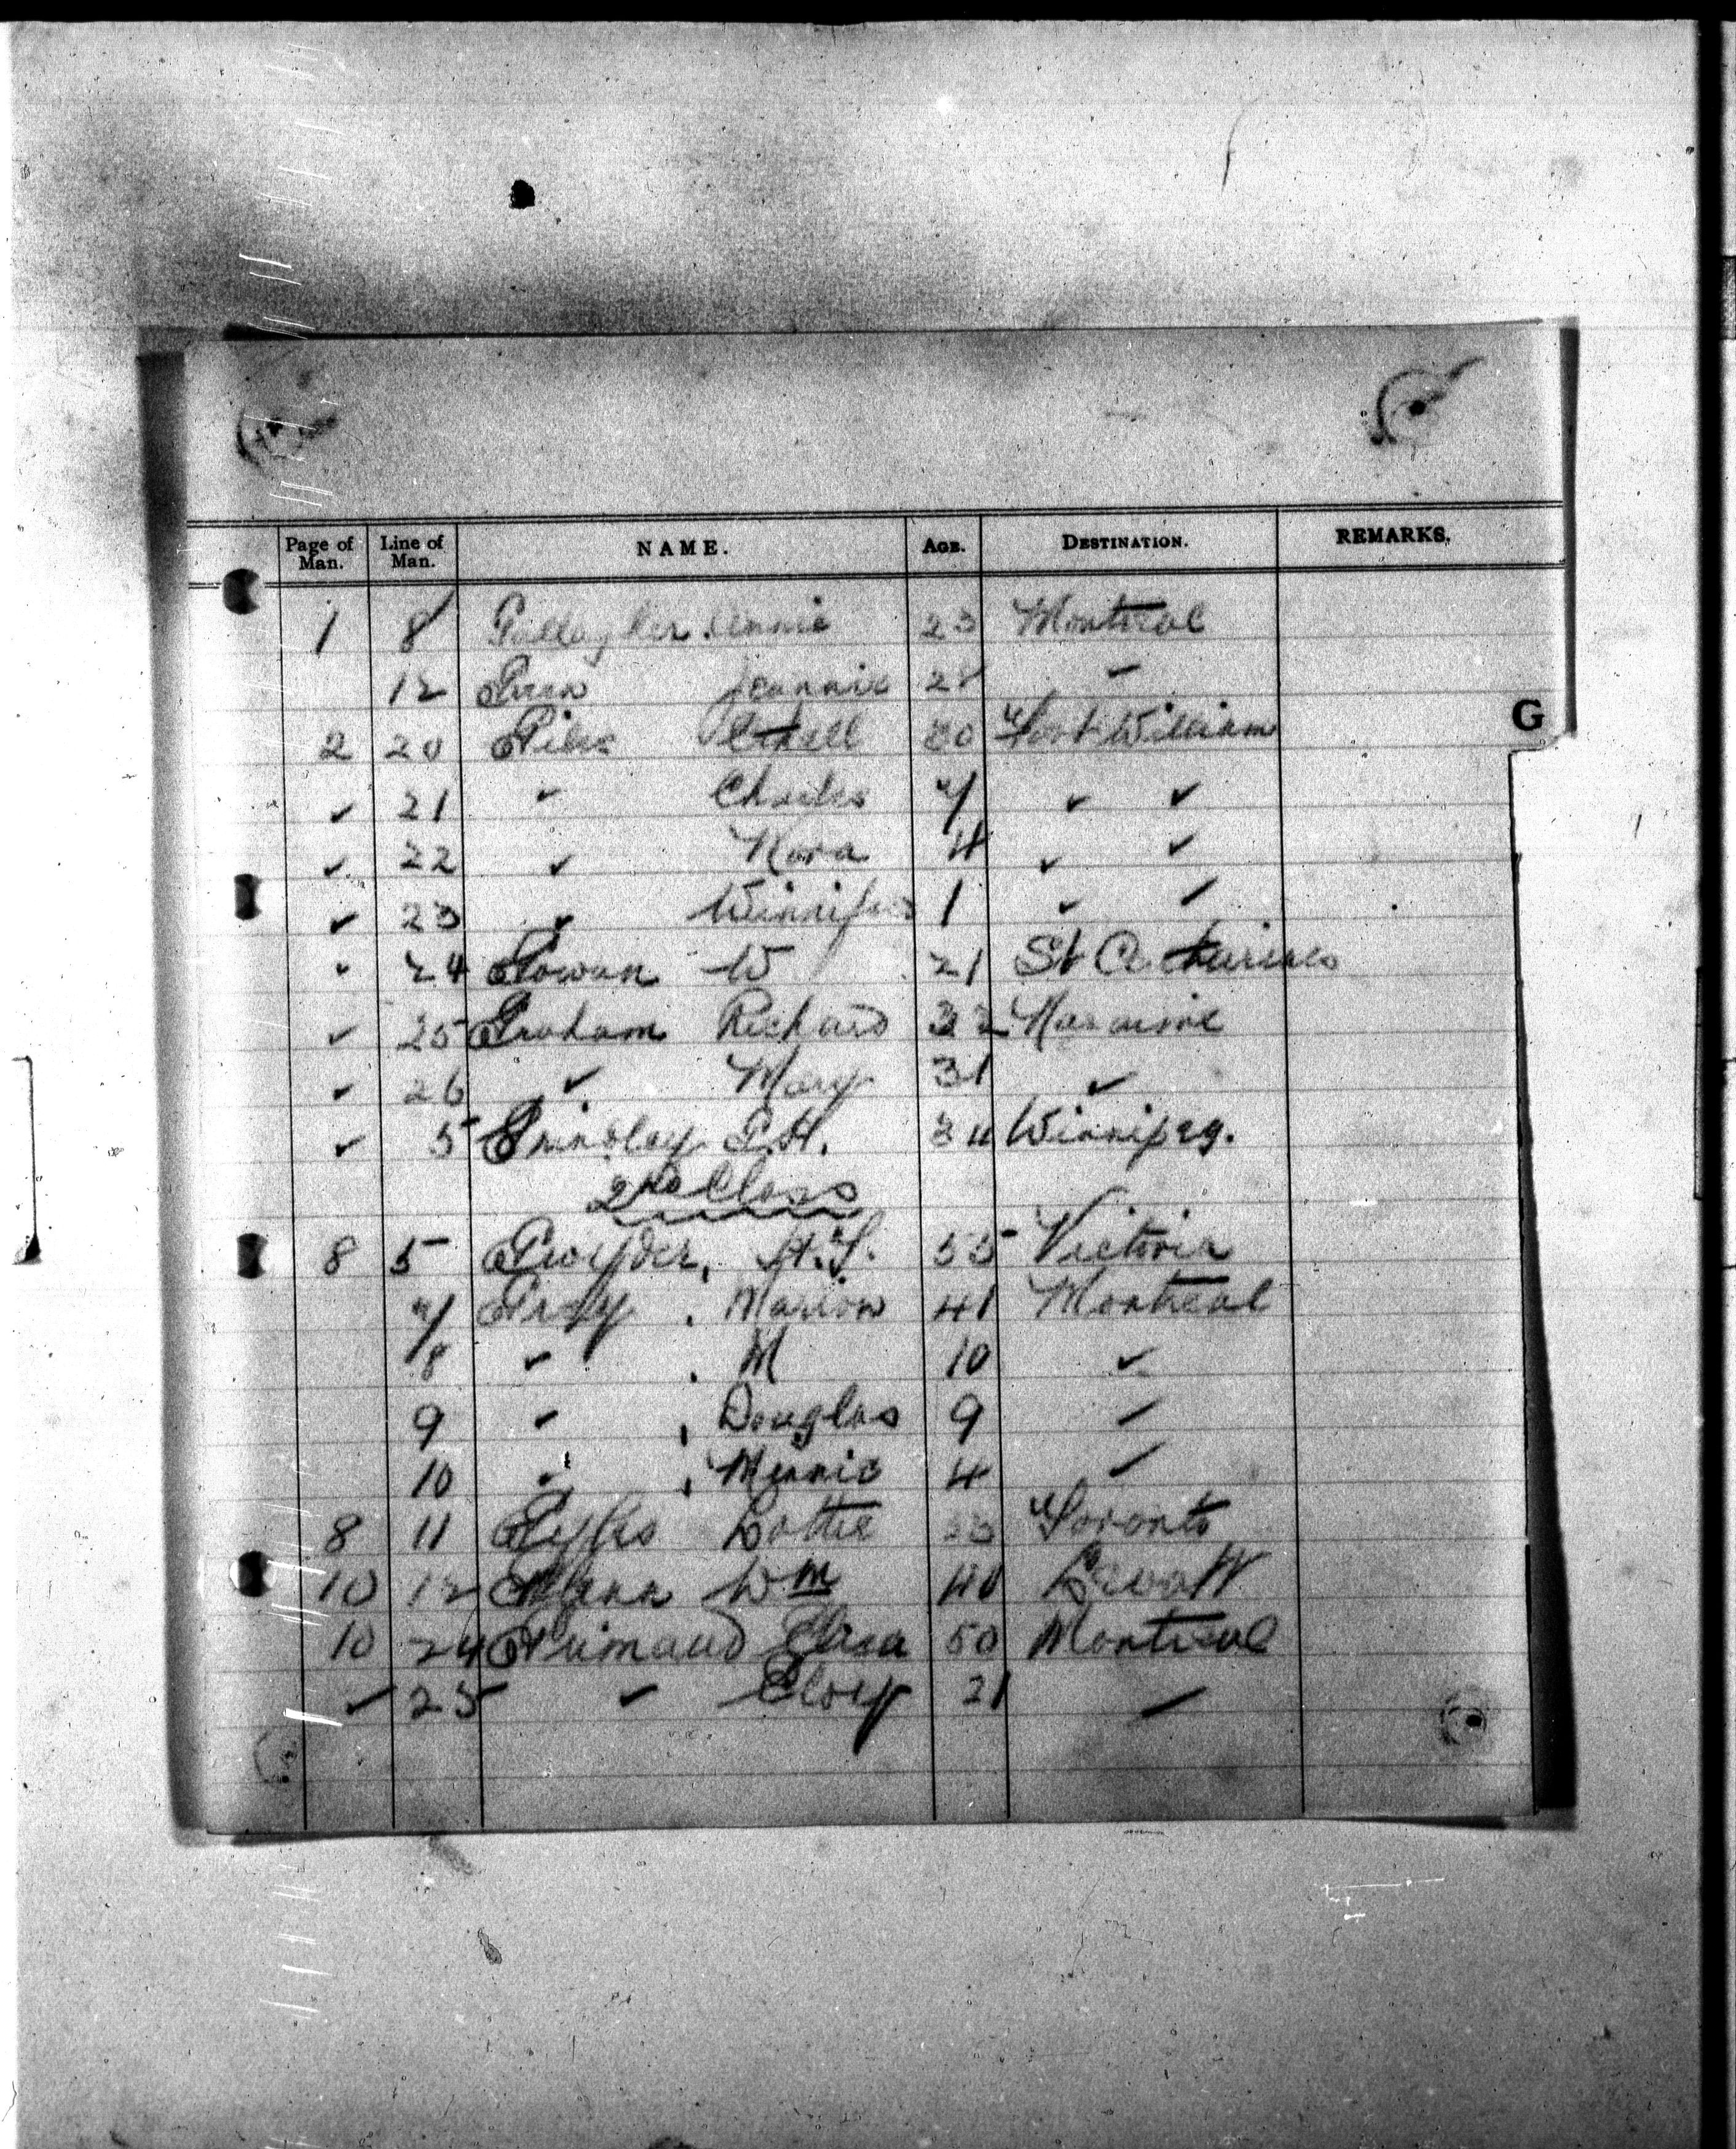 Page of Man. Line of Man. NAME. AGE. DESTINATION. REMARKS.
1 8 Gallagher Annie 23 Montreal
12 Jeannie 28 "
G
2 20 Giles 30 Fort William
✓ 21 ✓ Charles 7 ✓ ✓
✓ 22 ✓ Nora 4 ✓ ✓
✓ 23 ✓ 1 ✓ ✓
✓ 24 Gowan W 21 St
✓ 25 Graham Richard 32
✓ 26 ✓ Mary 31 ✓
✓ 5 Grindley P.H. 34 Winnipeg.
2nd Class
8 5 Gwyder, H.T. 55 Victoria
7 Gray, Marion 41 Montreal
8 ✓ , M 10 ✓
9 ✓ , Douglas 9 ✓
10 ✓ , Minnie 4 ✓
8 11 Lottie Toronto
10 12 Glenn Wm 40
10 24 Guimaud Elisa 50 Montreal
✓ 25 ✓ Eloy 21 ✓